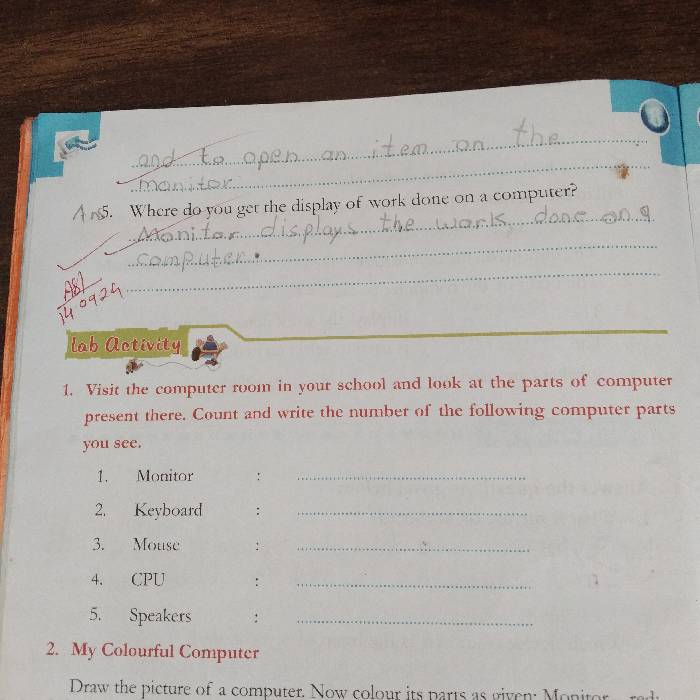 and to open an item on the
monitor
Ans5. Where do you get the display of work done on a computer?
Monitor displays the work, done on a
computer.
14 0924
Lab Activity
1. Visit the computer room in your school and look at the parts of computer
present there. Count and write the number of the following computer parts
you see.
1. Monitor :
2. Keyboard :
3. Mouse :
4. CPU :
5. Speakers :
2. My Colourful Computer
Draw the picture of a computer. Now colour its parts as given: Monitor – red;